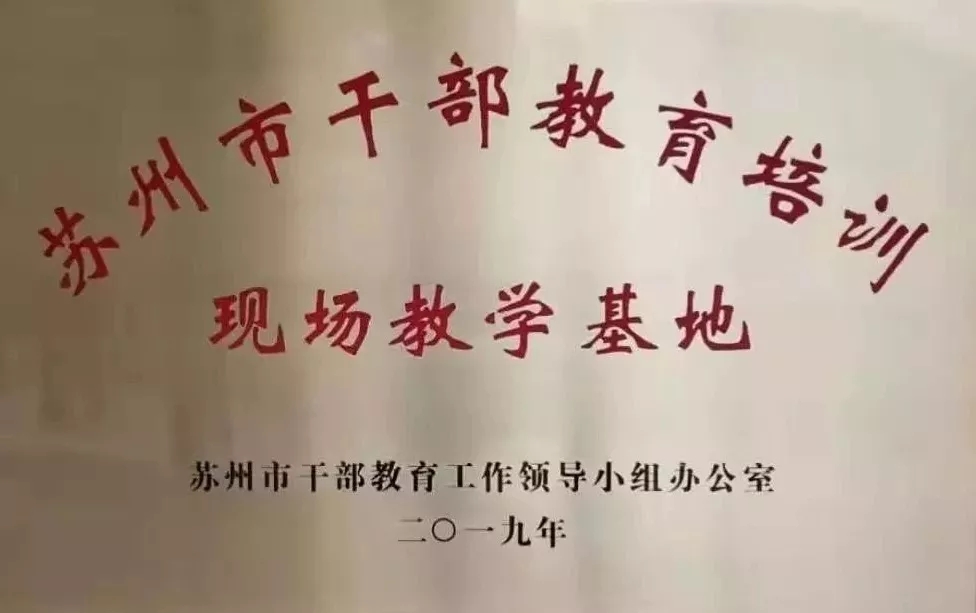 苏州市干部教育培训
现场教学基地
苏州市干部教育工作领导小组办公室
二〇一九年